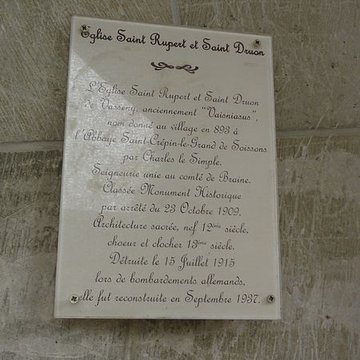 Eglise Saint Rupert et Saint Druon
L'Eglise Saint Rupert et Saint Druon
de Vasseny, anciennement "Vaisniasus",
nom donné au village en 893 à
l'Abbaye Saint-Crépin-le-Grand de Soissons
par Charles le Simple.
Seigneurie unie au comté de Braine.
Classée Monument Historique
par arrêté du 23 Octobre 1909.
Architecture sacrée, nef 12ème siècle,
choeur et clocher 13ème siècle.
Détruite le 15 Juillet 1915
lors de bombardements allemands,
elle fut reconstruite en Septembre 1937.